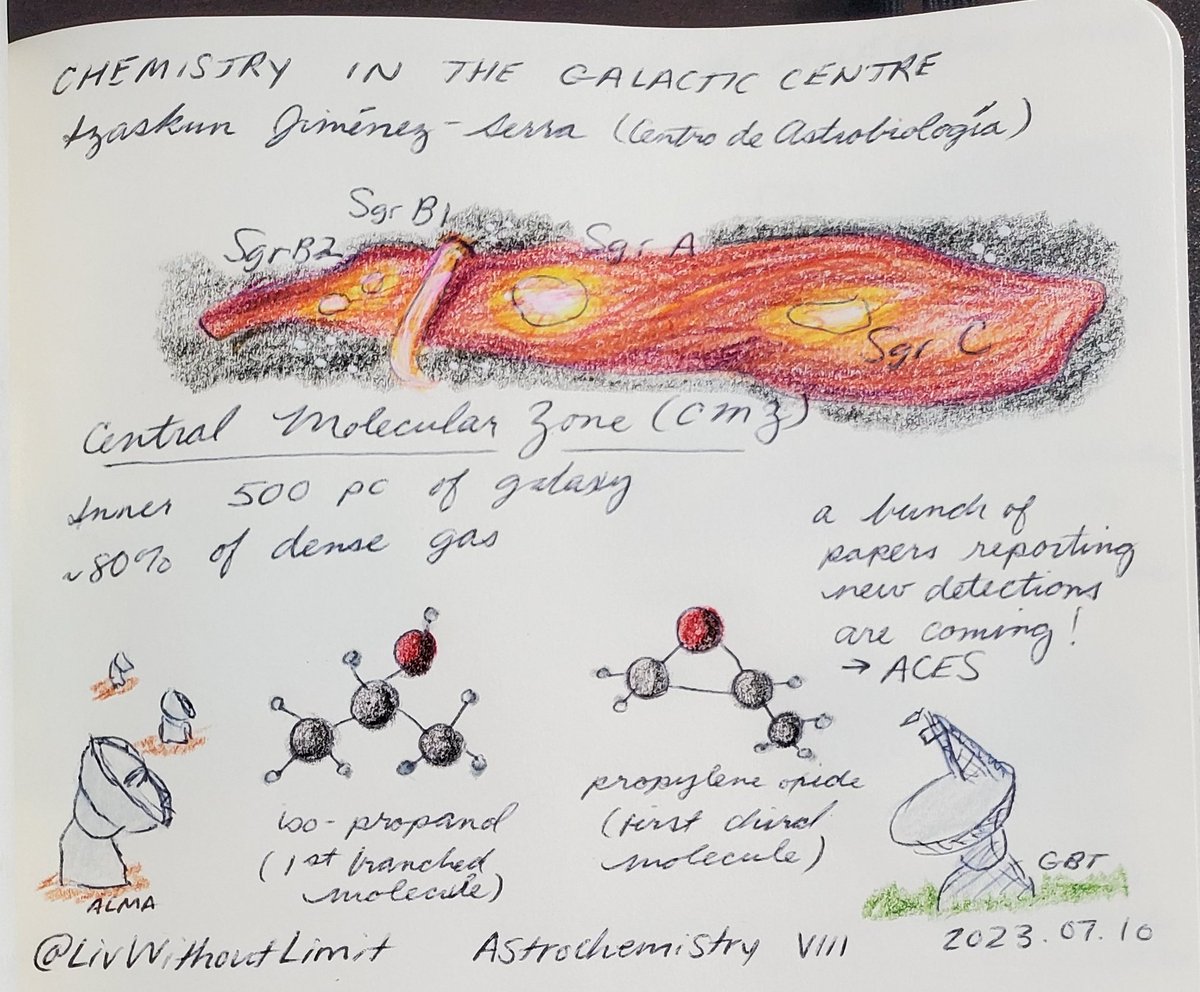 CHEMISTRY IN THE GALACTIC CENTRE
Izaskun Jiménez-Serra (Centro de Astrobiología)
Sgr B1
Sgr B2
Sgr A
Sgr C
Central Molecular Zone (CMZ)
Inner 500 pc of galaxy
~80% of dense gas
a bunch of
papers reporting
new detections
are coming!
→ ACES
iso-propanol
(1st branched
molecule)
propylene oxide
(first chiral
molecule)
ALMA
GBT
@LivWithoutLimit
Astrochemistry VIII
2023.07.10